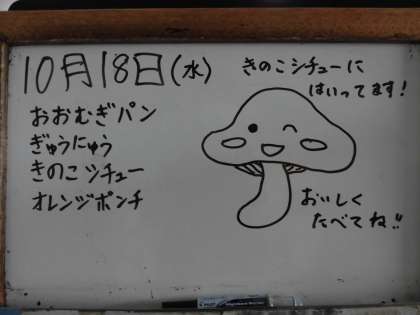 10月18日(水)
おおむぎパン
ぎゅうにゅう
きのこシチュー
オレンジポンチ
きのこシチューに
はいってます!
おいしく
たべてね!!